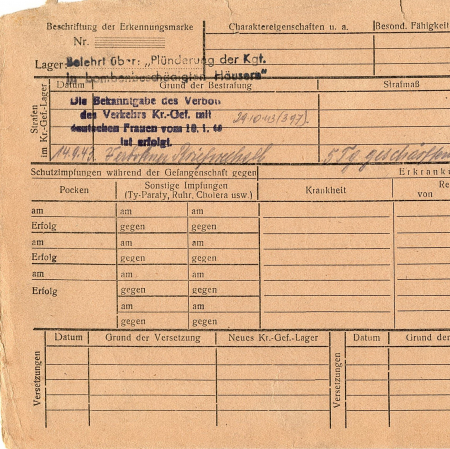 Beschriftung der Erkennungsmarke
Charaktereigenschaften u. a.
Besond. Fähigkeit
Nr.
Lager:
Belehrt über: „Plünderung der Kgf.
in bombenbeschädigten Häusern“
Strafen
im Kr.-Gef.-Lager
Datum
Grund der Bestrafung
Strafmaß
Die Bekanntgabe des Verbots
des Verkehrs Kr.-Gef. mit
deutschen Frauen vom 10. 1. 40
ist erfolgt.
14.9.43
5 Tg. geschärften
Schutzimpfungen während der Gefangenschaft gegen
Erkrank
Pocken
Sonstige Impfungen
(Ty-Paraty, Ruhr, Cholera usw.)
Krankheit
Re
von
am am am
Erfolg gegen gegen
am am am
Erfolg gegen gegen
am am am
Erfolg gegen gegen
am am
gegen gegen
Versetzungen
Datum
Grund der Versetzung
Neues Kr.-Gef.-Lager
Versetzungen
Datum
Grund der